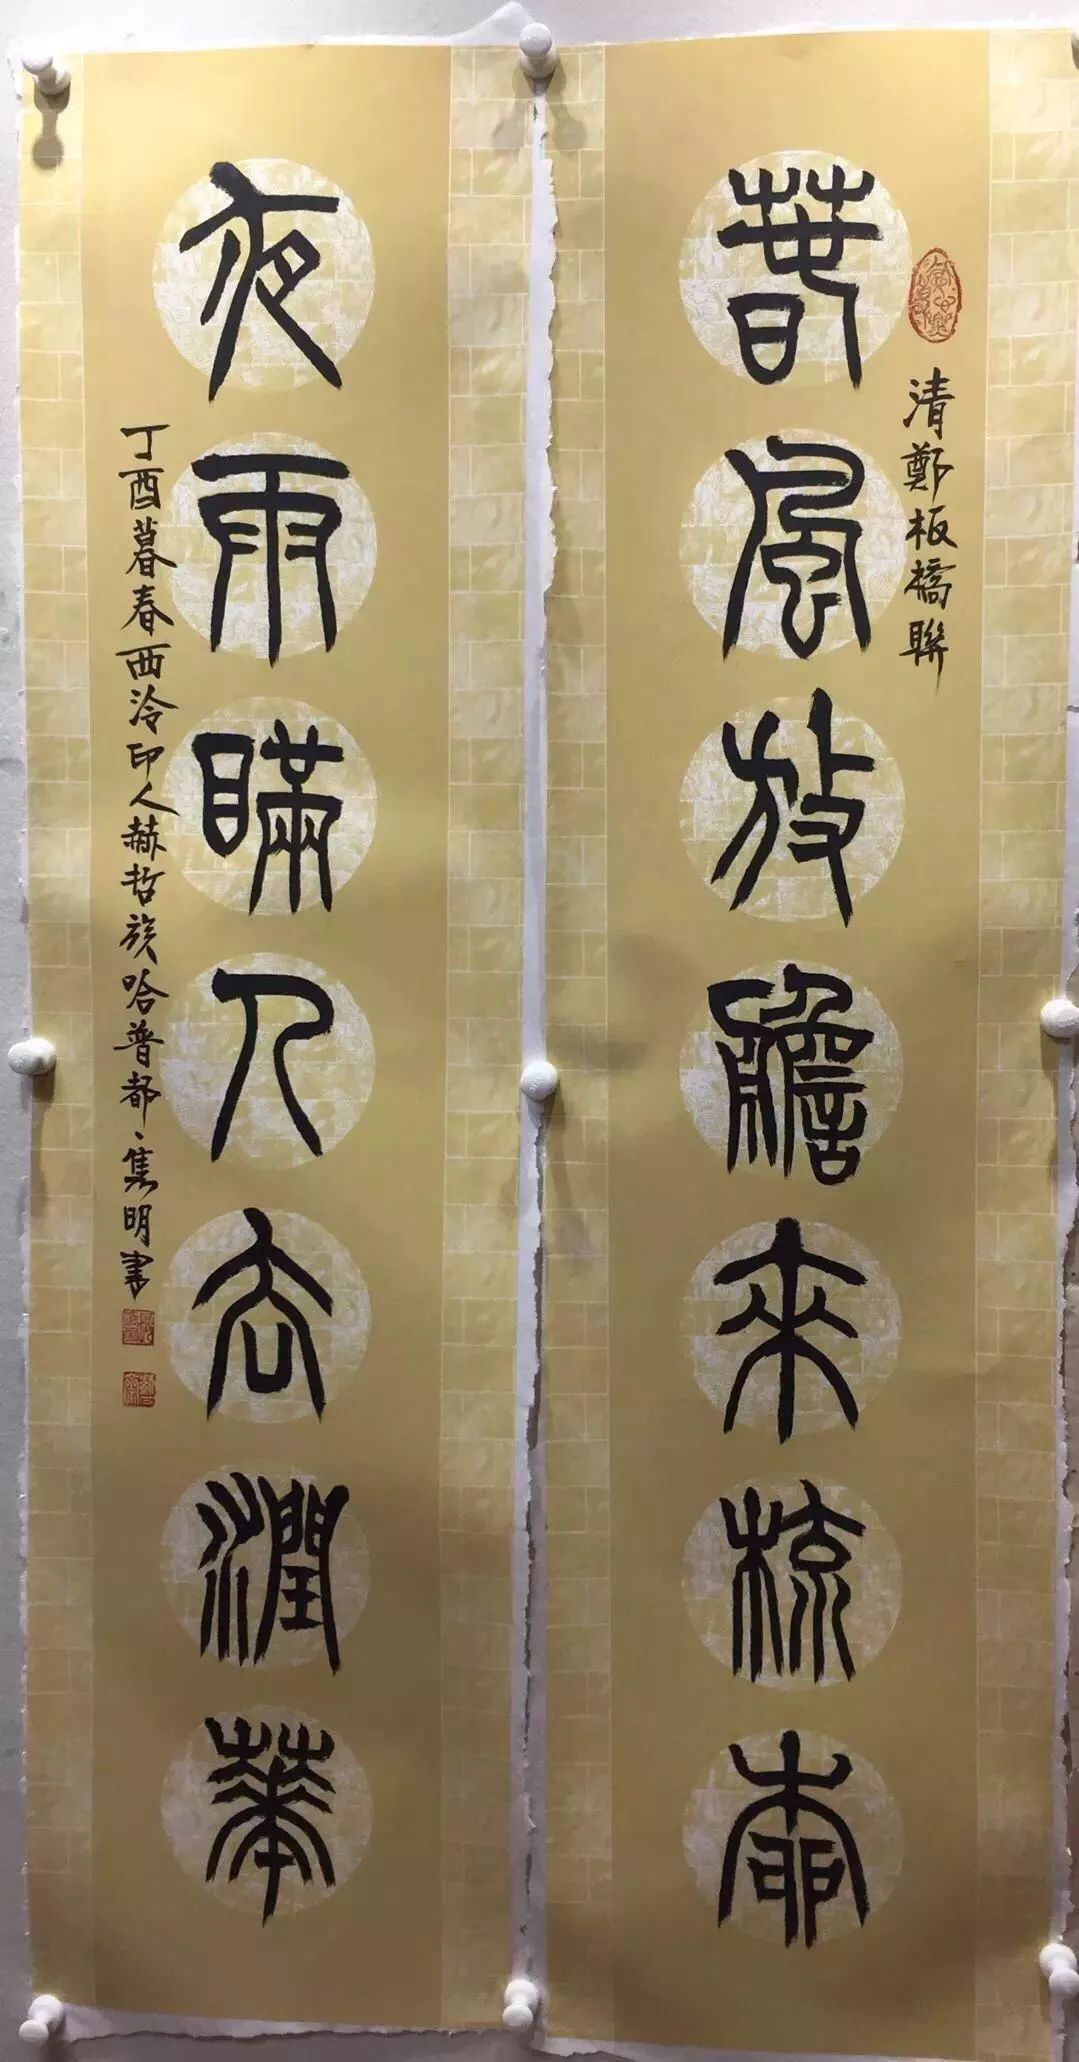 清鄭板橋聯
春風放膽來梳柳
夜雨瞞人去潤華
丁酉暮春西泠印人赫哲族哈普都·隽明書